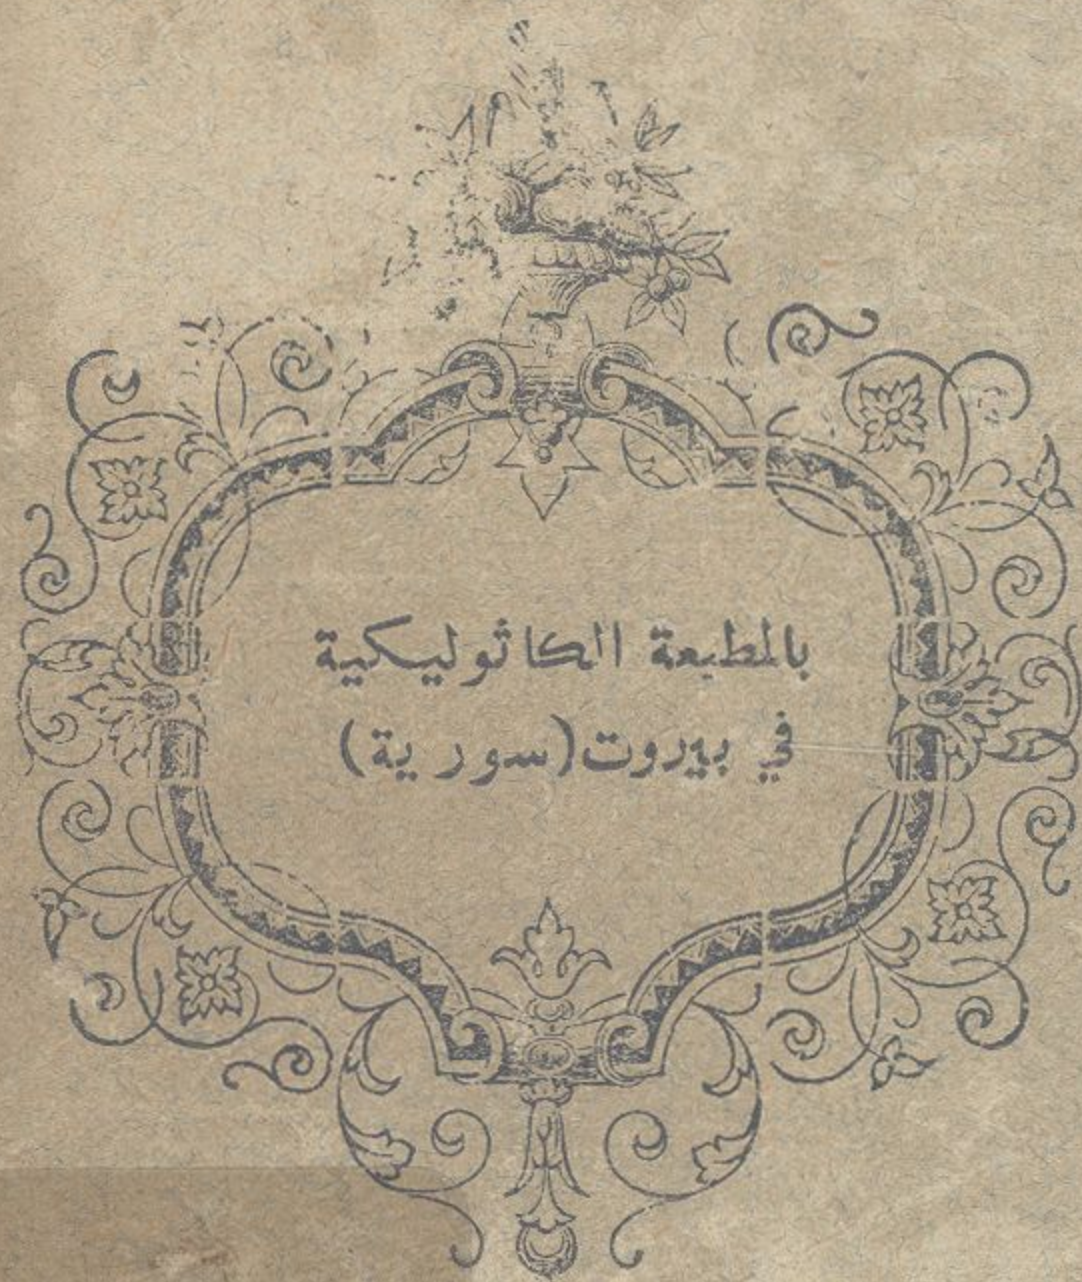 بالمطبعة الكاثوليكية
في بيروت (سورية)